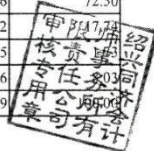 72.50
2 17.74
5
6 03
9 100.00
绍兴同济会计
师事务所有
限责任公司
审核专用章